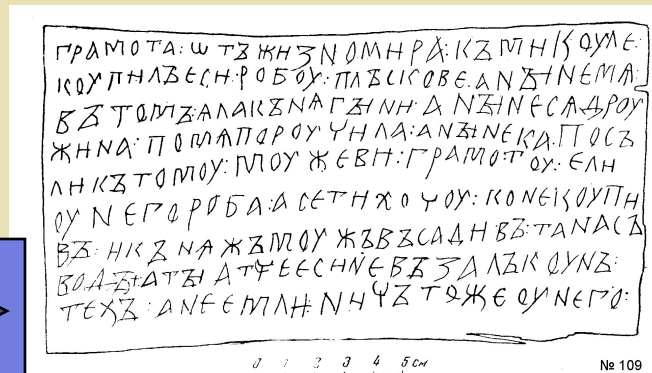 ГРАМОТА:ѠТЪЖИЗНОМИРА:КЪМИКОУЛЕ:
КОУПИЛЪЕСИ:РОБОУ:ПЛЪСКОВЕ:АНЪІНЕМѦ:
ВЪТОМЪ:ѦЛАКЪНѦГЪІНИ:АНЪІНЕСѦДРОУ
ЖИНА:ПОМѦПОРОУЧИЛА:АНЪІНЕКА:ПОСЪ
ЛИКЪТОМОУ:МОУЖЕВИ:ГРАМОТОУ:ЕЛИ
ОУНЕГОРОБА:АСЕТИХОЧОУ:КОНЕКОУПИ
ВЪ:ИКЪНѦЖЪМОУЖЪВЪСАДИВЪ:ТАНАСЪ
ВОДЪІ:АТЪІАТЧЕЕСИНЕВЪЗАЛЪКОУНЪ:
ТЕХЪ:АНЕЕМЛИ:НИЧЪТОЖЕОУНЕГО:
0 1 2 3 4 5 см
№ 109